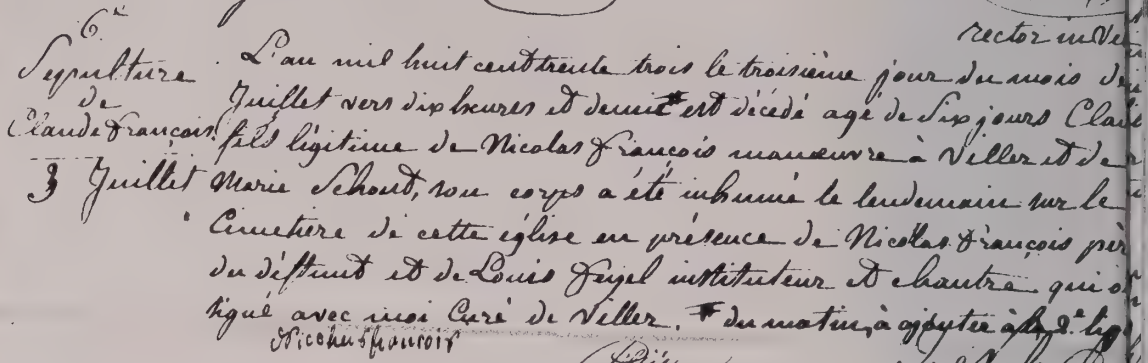 rector in
6e
Sepulture
de
Claude François
3 Juillet
L'an mil huit cent trente trois le troisième jour du mois de
Juillet vers dix heures et demie # est décédé agé de dix jours Claude
fils légitime de Nicolas François manœuvre à Viller et de
Marie Schout, son corps a été inhumé le lendemain sur le
Cimetière de cette église en présence de Nicolas François pèr
du défunt et de Louis Feyel instituteur et chantre qui o
signé avec moi Curé de Viller. # du matin, à ajouter à la 2e lig
Nicolas françois